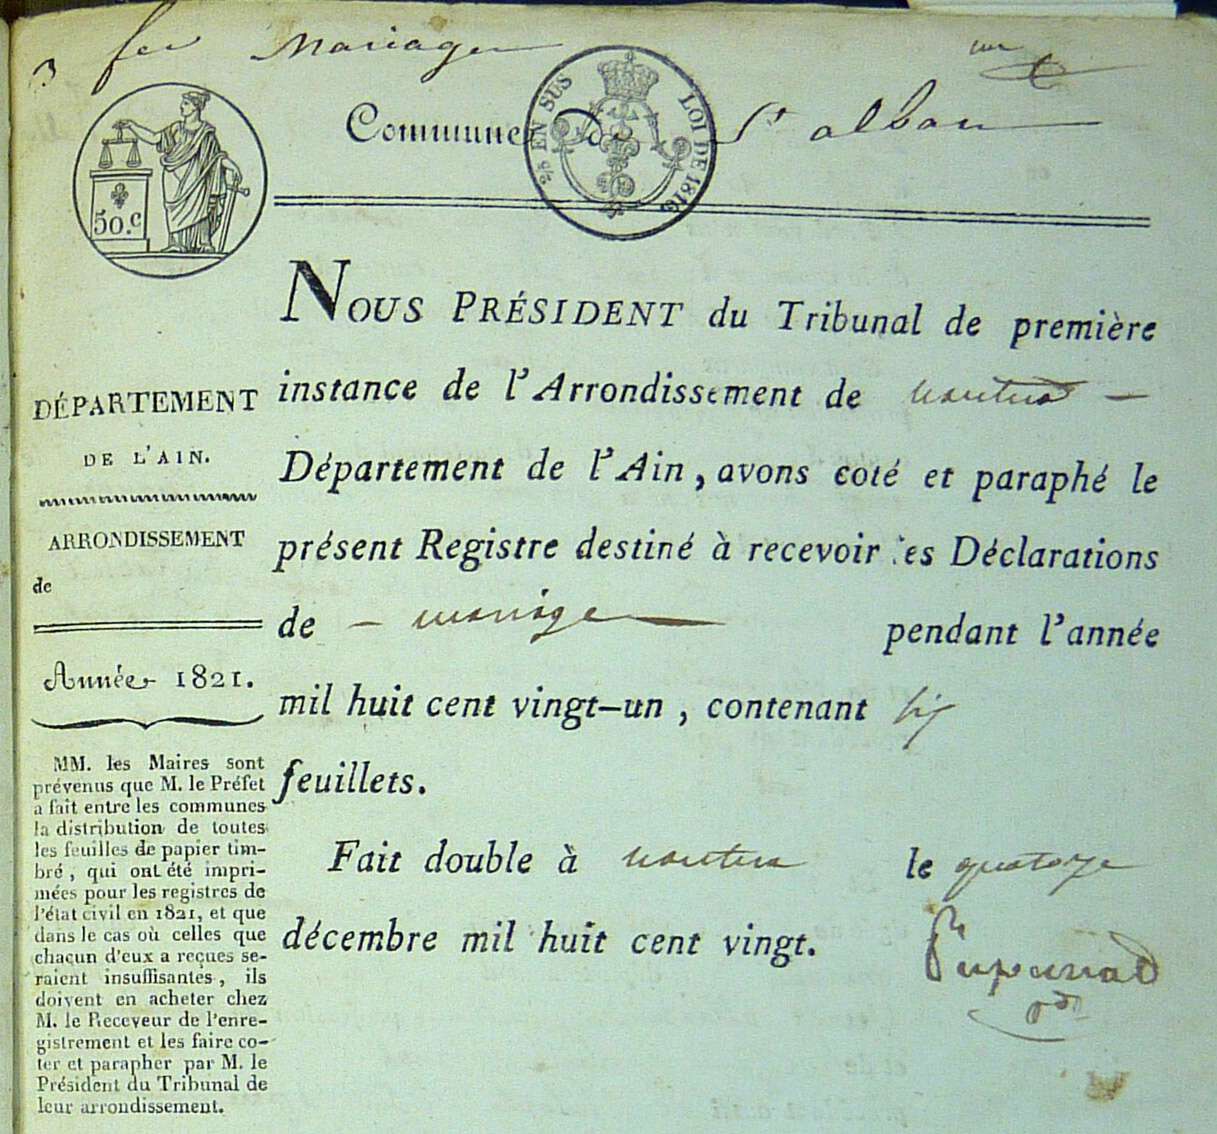 3 feu Mariage
Commune de St alban
2/5 EN SUS LOI DE 1816
50.c
NOUS PRÉSIDENT du Tribunal de première
instance de l'Arrondissement de nantua
Département de l'Ain, avons coté et paraphé le
présent Registre destiné à recevoir les Déclarations
de mariage pendant l'année
mil huit cent vingt-un, contenant six
feuillets.
Fait double à nantua le quatorze
décembre mil huit cent vingt.
DÉPARTEMENT
DE L'AIN.
ARRONDISSEMENT
de
Année 1821.
MM. les Maires sont
prévenus que M. le Préfet
a fait entre les communes
la distribution de toutes
les feuilles de papier tim-
bré, qui ont été impri-
mées pour les registres de
l'état civil en 1821, et que
dans le cas où celles que
chacun d'eux a reçues se-
raient insuffisantes, ils
doivent en acheter chez
M. le Receveur de l'enre-
gistrement et les faire co-
ter et parapher par M. le
Président du Tribunal de
leur arrondissement.